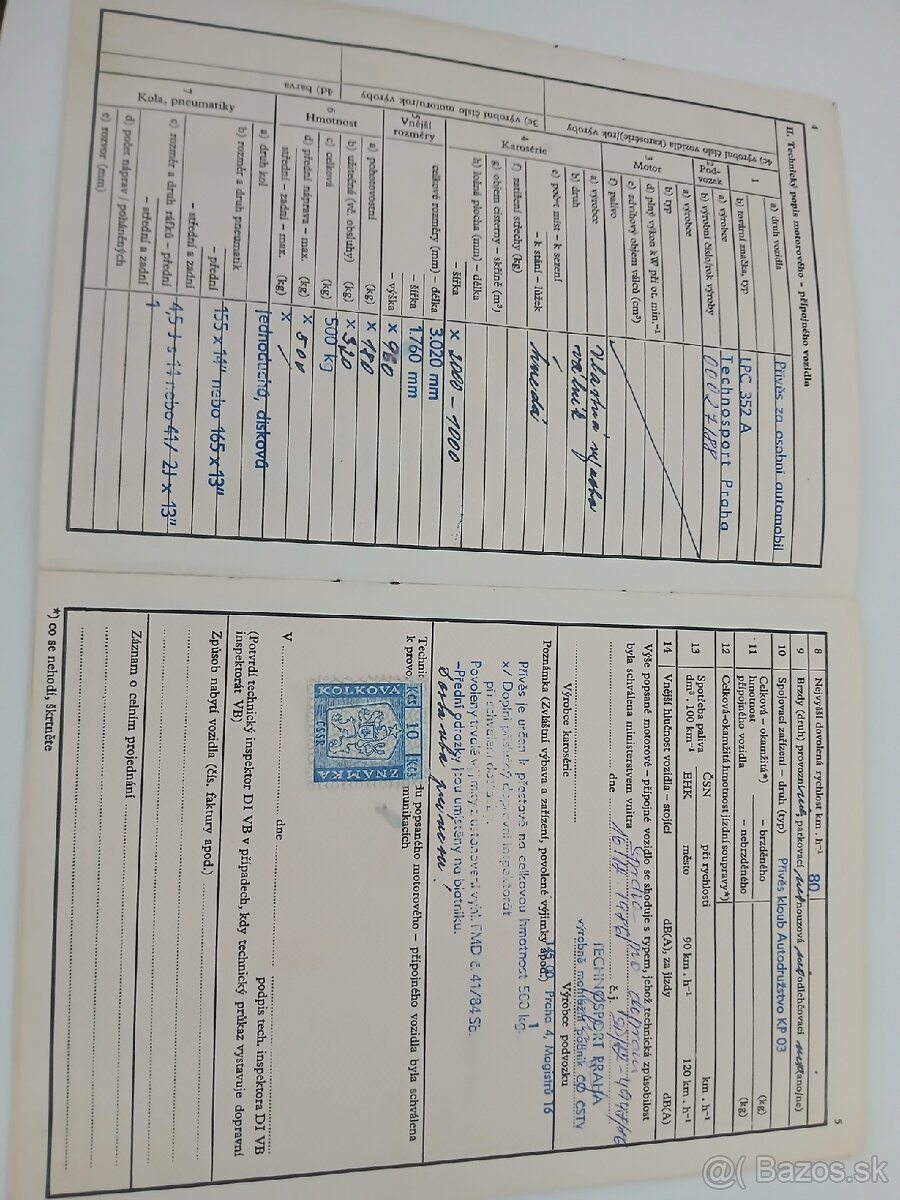 4
II. Technický popis motorového - přípojného vozidla
1
a) druh vozidla
Přívěs za osobní automobil
b) tovární značka, typ
LPC 352 A
2
Podvozek
a) výrobce
Technosport Praha
b) výrobní číslo/rok výroby
3
Motor
a) výrobce
b) typ
d) plný výkon kW při ot. min.⁻¹
e) zdvihový objem válců (cm³)
f) palivo
4
Karosérie
a) výrobce
Vlastná výroba
b) druh
valník
e) počet míst – k sezení
– k stání – lůžek
hnedá
f) zatížení střechy (kg)
g) objem cisterny – skříně (m³)
h) ložná plocha (mm) – délka
– šířka
x 2000 – 1000
5
Vnější rozměry
celkové rozměry (mm) – délka
3.020 mm
– šířka
1.760 mm
– výška
x 960
6
Hmotnost
a) pohotovostní (kg)
x 180
b) užitečná (vč. obsluhy) (kg)
x 320
c) celková (kg)
500 kg
d) přední náprava – max. (kg)
x 500
střední – zadní – max. (kg)
x
7
Kola, pneumatiky
a) druh kol
jednoduchá, disková
b) rozměr a druh pneumatik
– přední
– střední a zadní
155 x 14" nebo 165 x 13"
c) rozměr a druh ráfků – přední
– střední a zadní
4,5 J s 14 nebo 41/ 2J x 13"
d) počet náprav / poháněných
1
e) rozvor (mm)
4c) výrobní číslo vozidla (karosérie)/rok výroby
3c) výrobní číslo motoru/rok výroby
4d) barva
5
8 Nejvyšší dovolená rychlost km . h⁻¹
80
9 Brzdy (druh) provozní parkovací nouzová odlehčovací ano/ne)
10 Spojovací zařízení – druh (typ)
Přívěs kloub Autodružstvo KP 03
11 Celková – okamžitá*) hmotnost přípojného vozidla
– brzděného (kg)
– nebrzděného (kg)
12 Celková-okamžitá hmotnost jízdní soupravy*)
13 Spotřeba paliva dm³ . 100 km⁻¹
ČSN při rychlosti km . h⁻¹
EHK město 90 km . h⁻¹ 120 km . h⁻¹
14 Vnější hlučnost vozidla – stojící dB(A), za jízdy dB(A)
Výše popsané motorové – přípojné vozidlo se shoduje s typem, jehož technická způsobilost
byla schválena ministerstvem vnitra
dne č.j.
TECHNOSPORT PRAHA
Výrobce karosérie
Výrobce podvozku
Praha 4, Magistrů 16
1
Poznámka (Zvláštní výbava a zařízení, povolené výjimky apod.)
Přívěs je určen k přestavbě na celkovou hmotnost 500 kg.
x/ Doplní příslušný dopravní inspektorát
při schválení
Povolený trvalé výjimky z ustanovení vyhl. FMD č. 41/84 Sb.
–Přední odrazky jsou umístěny na blatníku.
popsaného motorového – přípojného vozidla byla schválena
k provo
KOLKOVÁ
Kčs 10 Kčs
ČSSR
ZNÁMKA
V dne
podpis tech. inspektora DI VB
(Potvrdí technický inspektor DI VB v případech, kdy technický průkaz vystavuje dopravní
inspektorát VB)
Způsob nabytí vozidla (čís. faktury apod.)
Záznam o celním projednání
*) co se nehodí, škrtněte
@( Bazos.sk